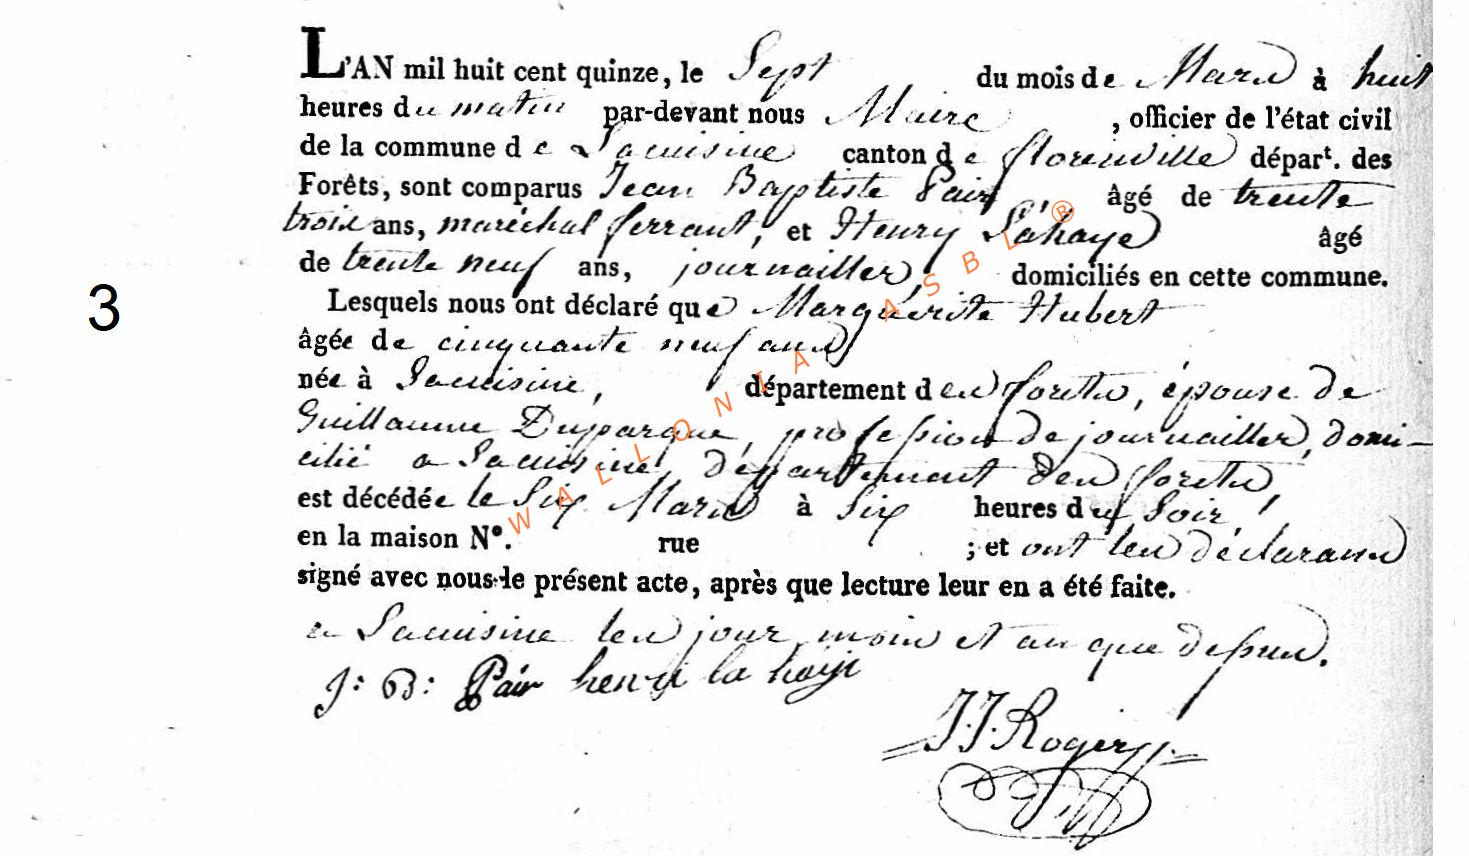 L'AN mil huit cent quinze, le Sept du mois de Mars à huit
heures du matin par-devant nous Maire , officier de l'état civil
de la commune de Lacuisine canton de florenville départ. des
Forêts, sont comparus Jean Baptiste Pair âgé de trente
trois ans, maréchal ferrant, et Henry Lahaye âgé
de trente neuf ans, journailler, domiciliés en cette commune.
3
Lesquels nous ont déclaré que Marguérite Hubert
âgée de cinquante neuf ans
née à Lacuisine, département des forêts, épouse de
Guillaume Duparque, profession de journailler, domi-
cilié a Lacuisine département des forêts,
est décédée le Six Mars à Six heures du Soir,
en la maison N°. rue ; et ont les déclarans
signé avec nous le présent acte, après que lecture leur en a été faite.
a Lacuisine les jour, mois et an que dessus.
J: B: Pair henri la haye
J.J. Rogier
WALLONIA ASBL ®